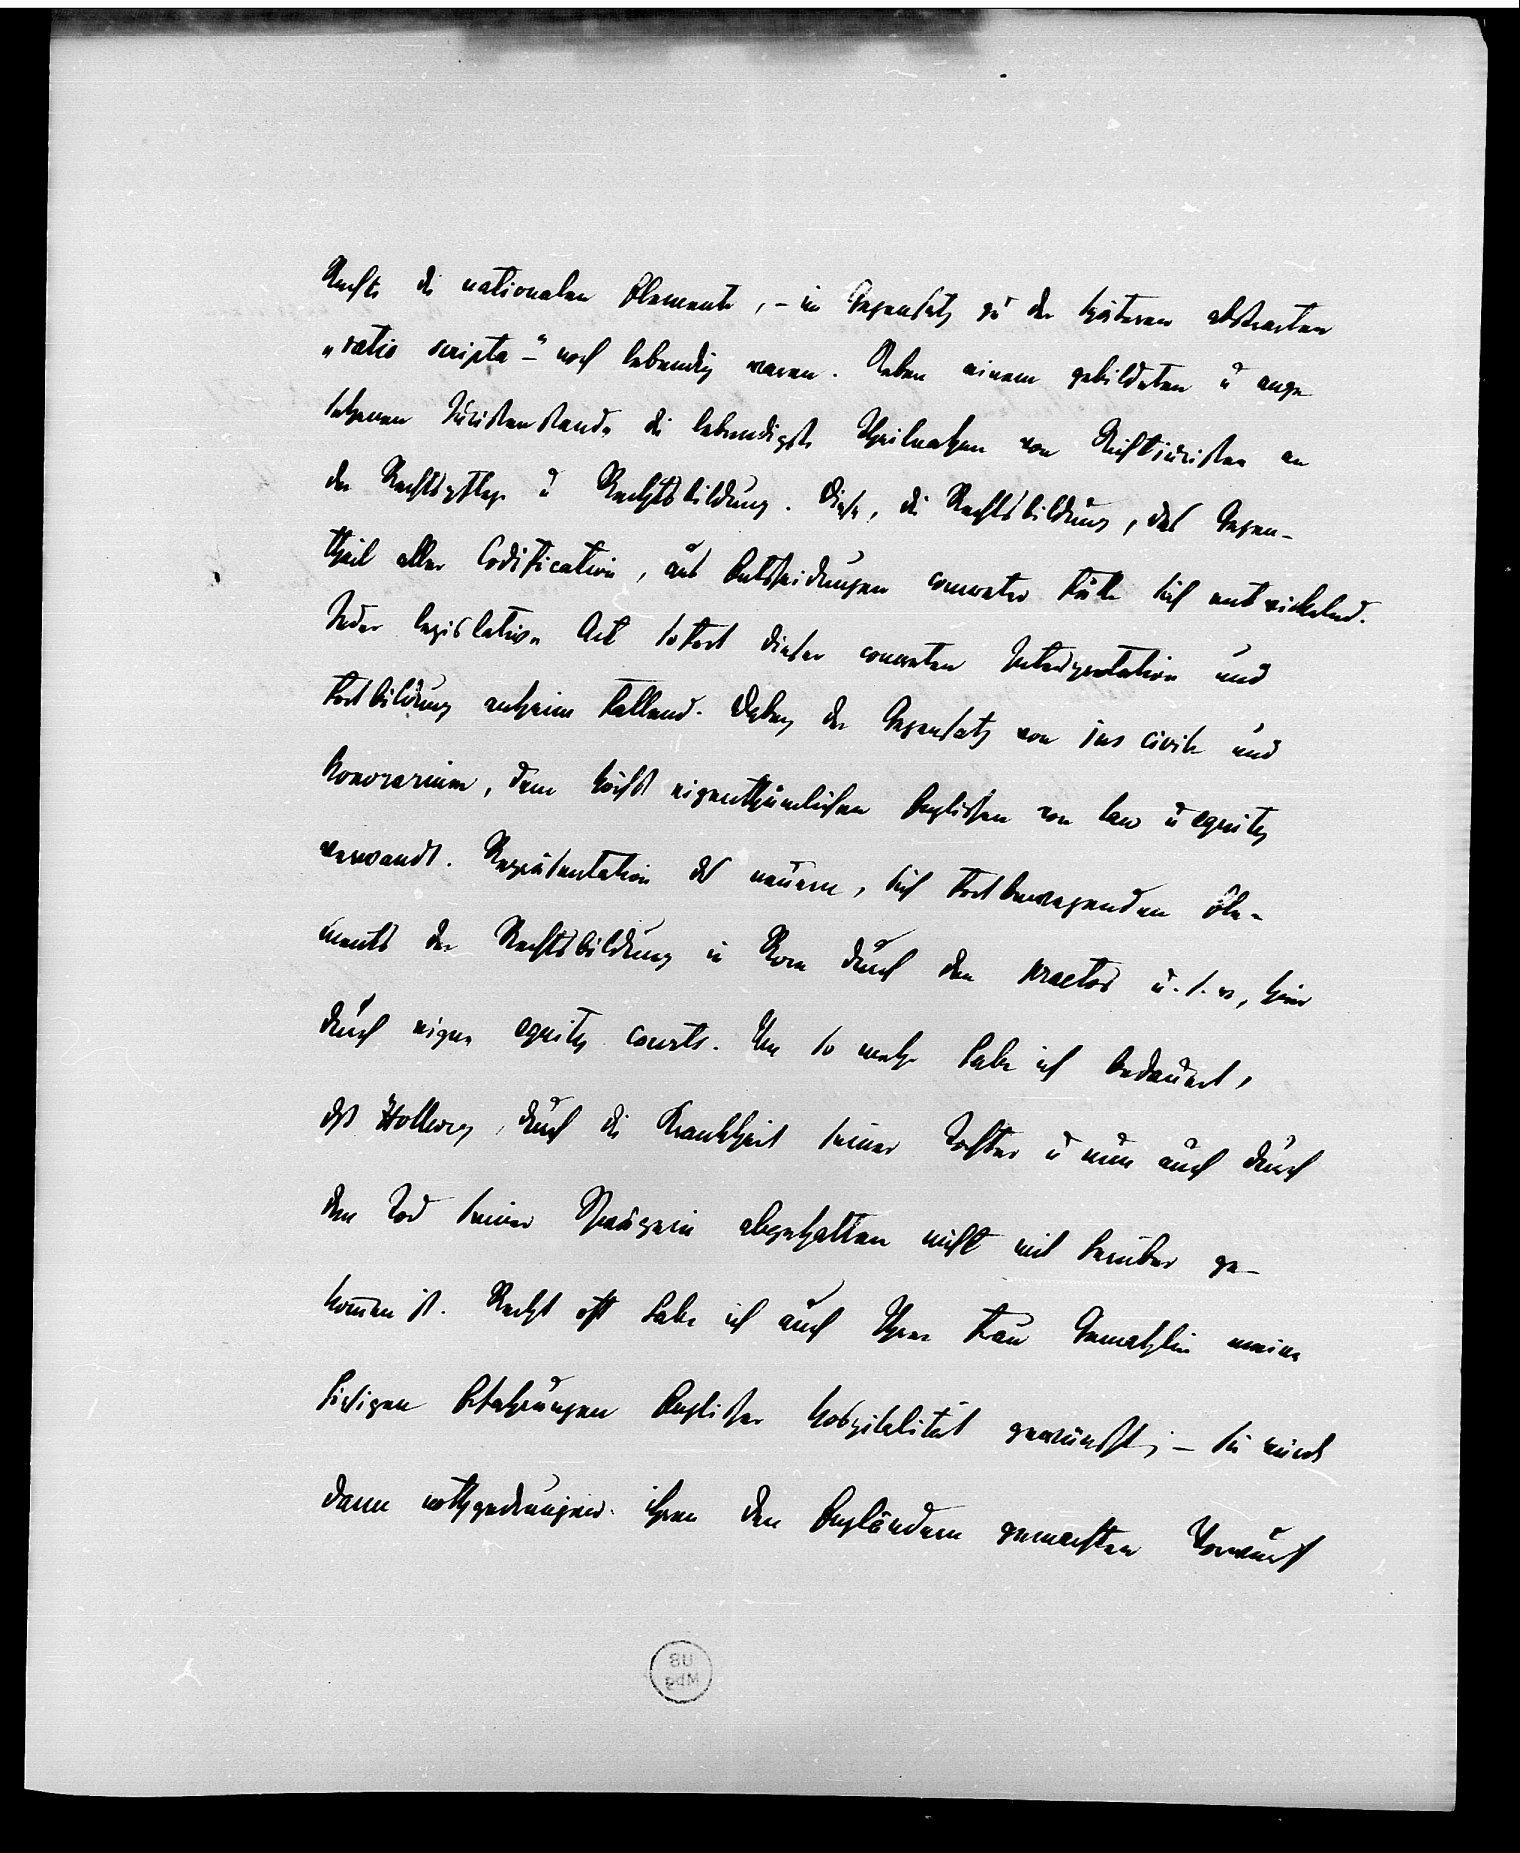 Rechts die nationalen Elemente, – im Gegensatz zu der späteren abstracten
„ratio scripta –" noch lebendig waren. Neben einem gebildeten u ange
sehenen Juristenstande die lebendigste Theilnahme von Nichtjuristen an
der Rechtspflege u Rechtsbildung. Diese, die Rechtsbildung, das Gegen-
theil aller Codification, aus Entscheidungen concreter Fälle sich entwickelnd.
Jeder legislative Act sofort dieser concreten Interpretation und
Fortbildung anheim fallend. Dabey der Gegensatz von jus civile und
honorarium, dem höchst eigenthümlichen Englischen von law u equity
verwandt. Repräsentation des neuern, sich fortbewegenden Ele-
ments der Rechtsbildung in Rom durch den praetor u.s.w, hier
durch eigne equity courts. Um so mehr habe ich bedauert,
daß Hollweg, durch die Krankheit seiner Tochter u nun auch durch
den Tod seiner abgehalten nicht mit herüber ge-
kommen ist. Recht oft habe ich auch Ihrer Frau Gemahlin meine
hiesigen Erfahrungen Englischer Hospitalität gewünscht; – sie würde
dann nothgedrungen ihren den Engländern gemachten Vorwurf
UB
Mbg